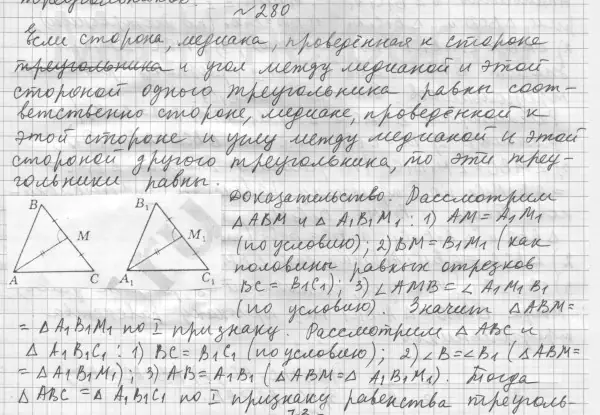 ~280
Если сторона, медиана, проведённая к стороне
треугольника и угол между медианой и этой
стороной одного треугольника равны соот-
ветственно стороне, медиане, проведённой к
этой стороне и углу между медианой и этой
стороной другого треугольника, то эти треу-
гольники равны.
B
M
A
C
B₁
M₁
A₁
C₁
Доказательство. Рассмотрим
△ABM и △A₁B₁M₁: 1) AM = A₁M₁
(по условию); 2) BM = B₁M₁ (как
половины равных отрезков
BC = B₁C₁); 3) ∠AMB = ∠A₁M₁B₁
(по условию). Значит △ABM =
= △A₁B₁M₁ по I признаку. Рассмотрим △ABC и
△A₁B₁C₁: 1) BC = B₁C₁ (по условию); 2) ∠B = ∠B₁ (△ABM =
= △A₁B₁M₁); 3) AB = A₁B₁ (△ABM = △A₁B₁M₁). Тогда
△ABC = △A₁B₁C₁ по I признаку равенства треуголь-